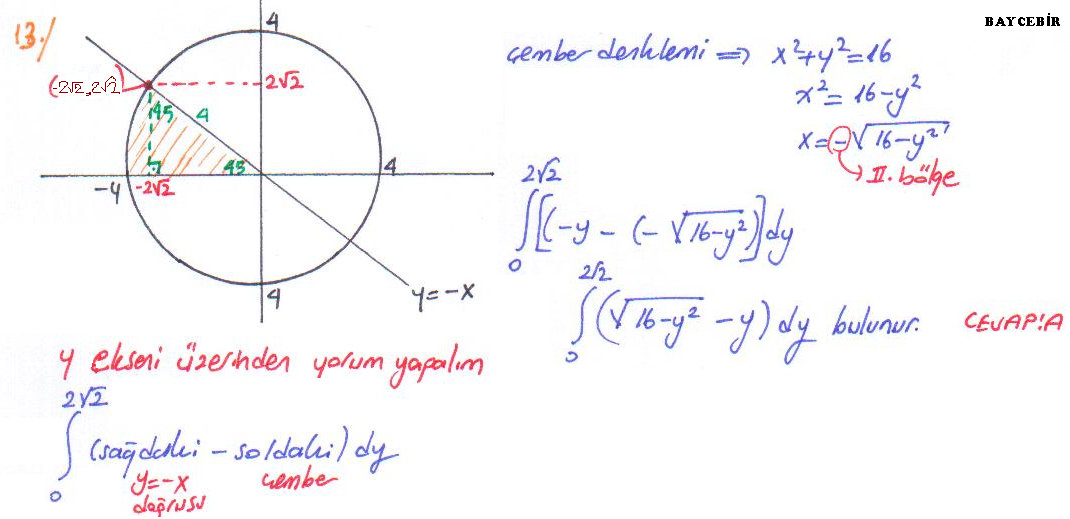 BAYCEBİR
13./
4
(-2√2, 2√2)
2√2
45
4
45
-4
-2√2
4
4
y=-x
çember denklemi ⇒ x²+y²=16
x²= 16-y²
x=-√16-y²
→ II. bölge
∫₀^{2√2} [(-y - (-√16-y²)] dy
∫₀^{2√2} (√16-y² - y) dy bulunur. CEVAP:A
y ekseni üzerinden yorum yapalım
∫₀^{2√2} (sağdaki - soldaki) dy
y=-x çember
doğrusu